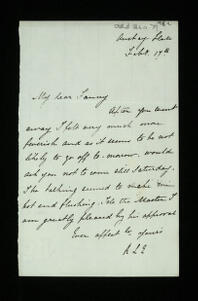 Feb. 17th
My dear Fanny
After you went
away I felt very much more
feverish and as it seems to be not
likely to go off to-morrow would
ask you not to come till Saturday.
The talking seemed to make me
hot and flushing. Tell the Master I
am greatly pleased by his approval
Ever affect. yours